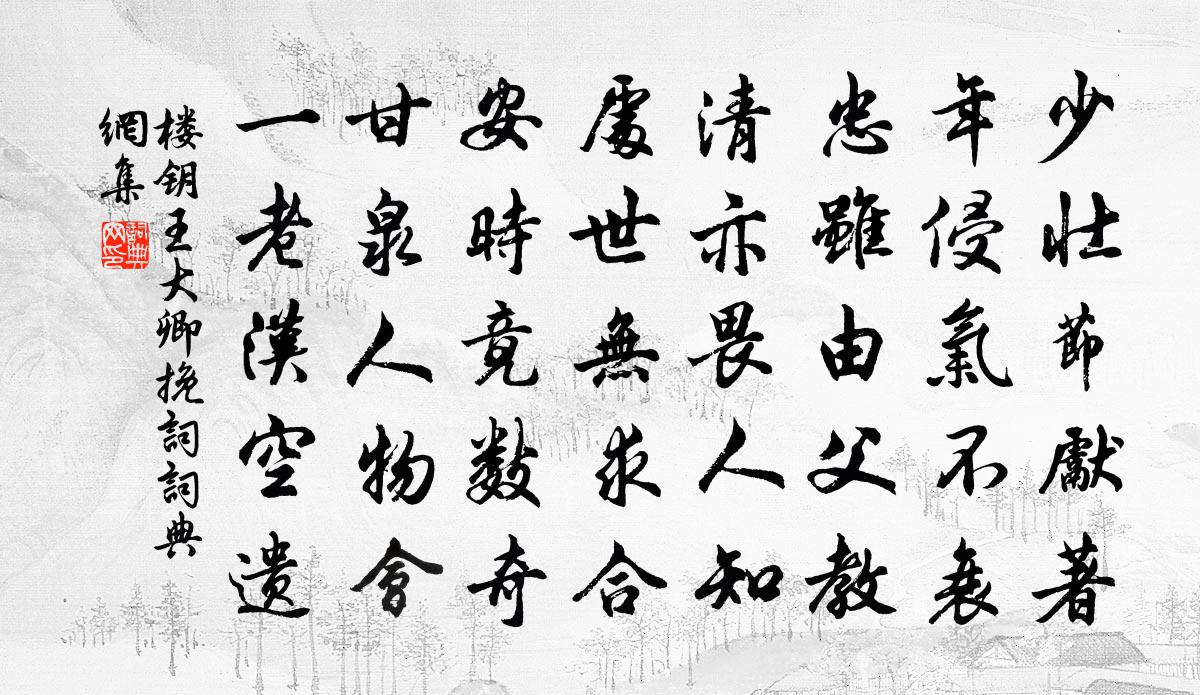 少壮節獻著
年侵氣不衰
忠雖由父教
清亦畏人知
處世無求合
安時竟數奇
甘泉人物會
一老漢空遺
楼钥王大卿挽詞詞典
網集
詞典
网印